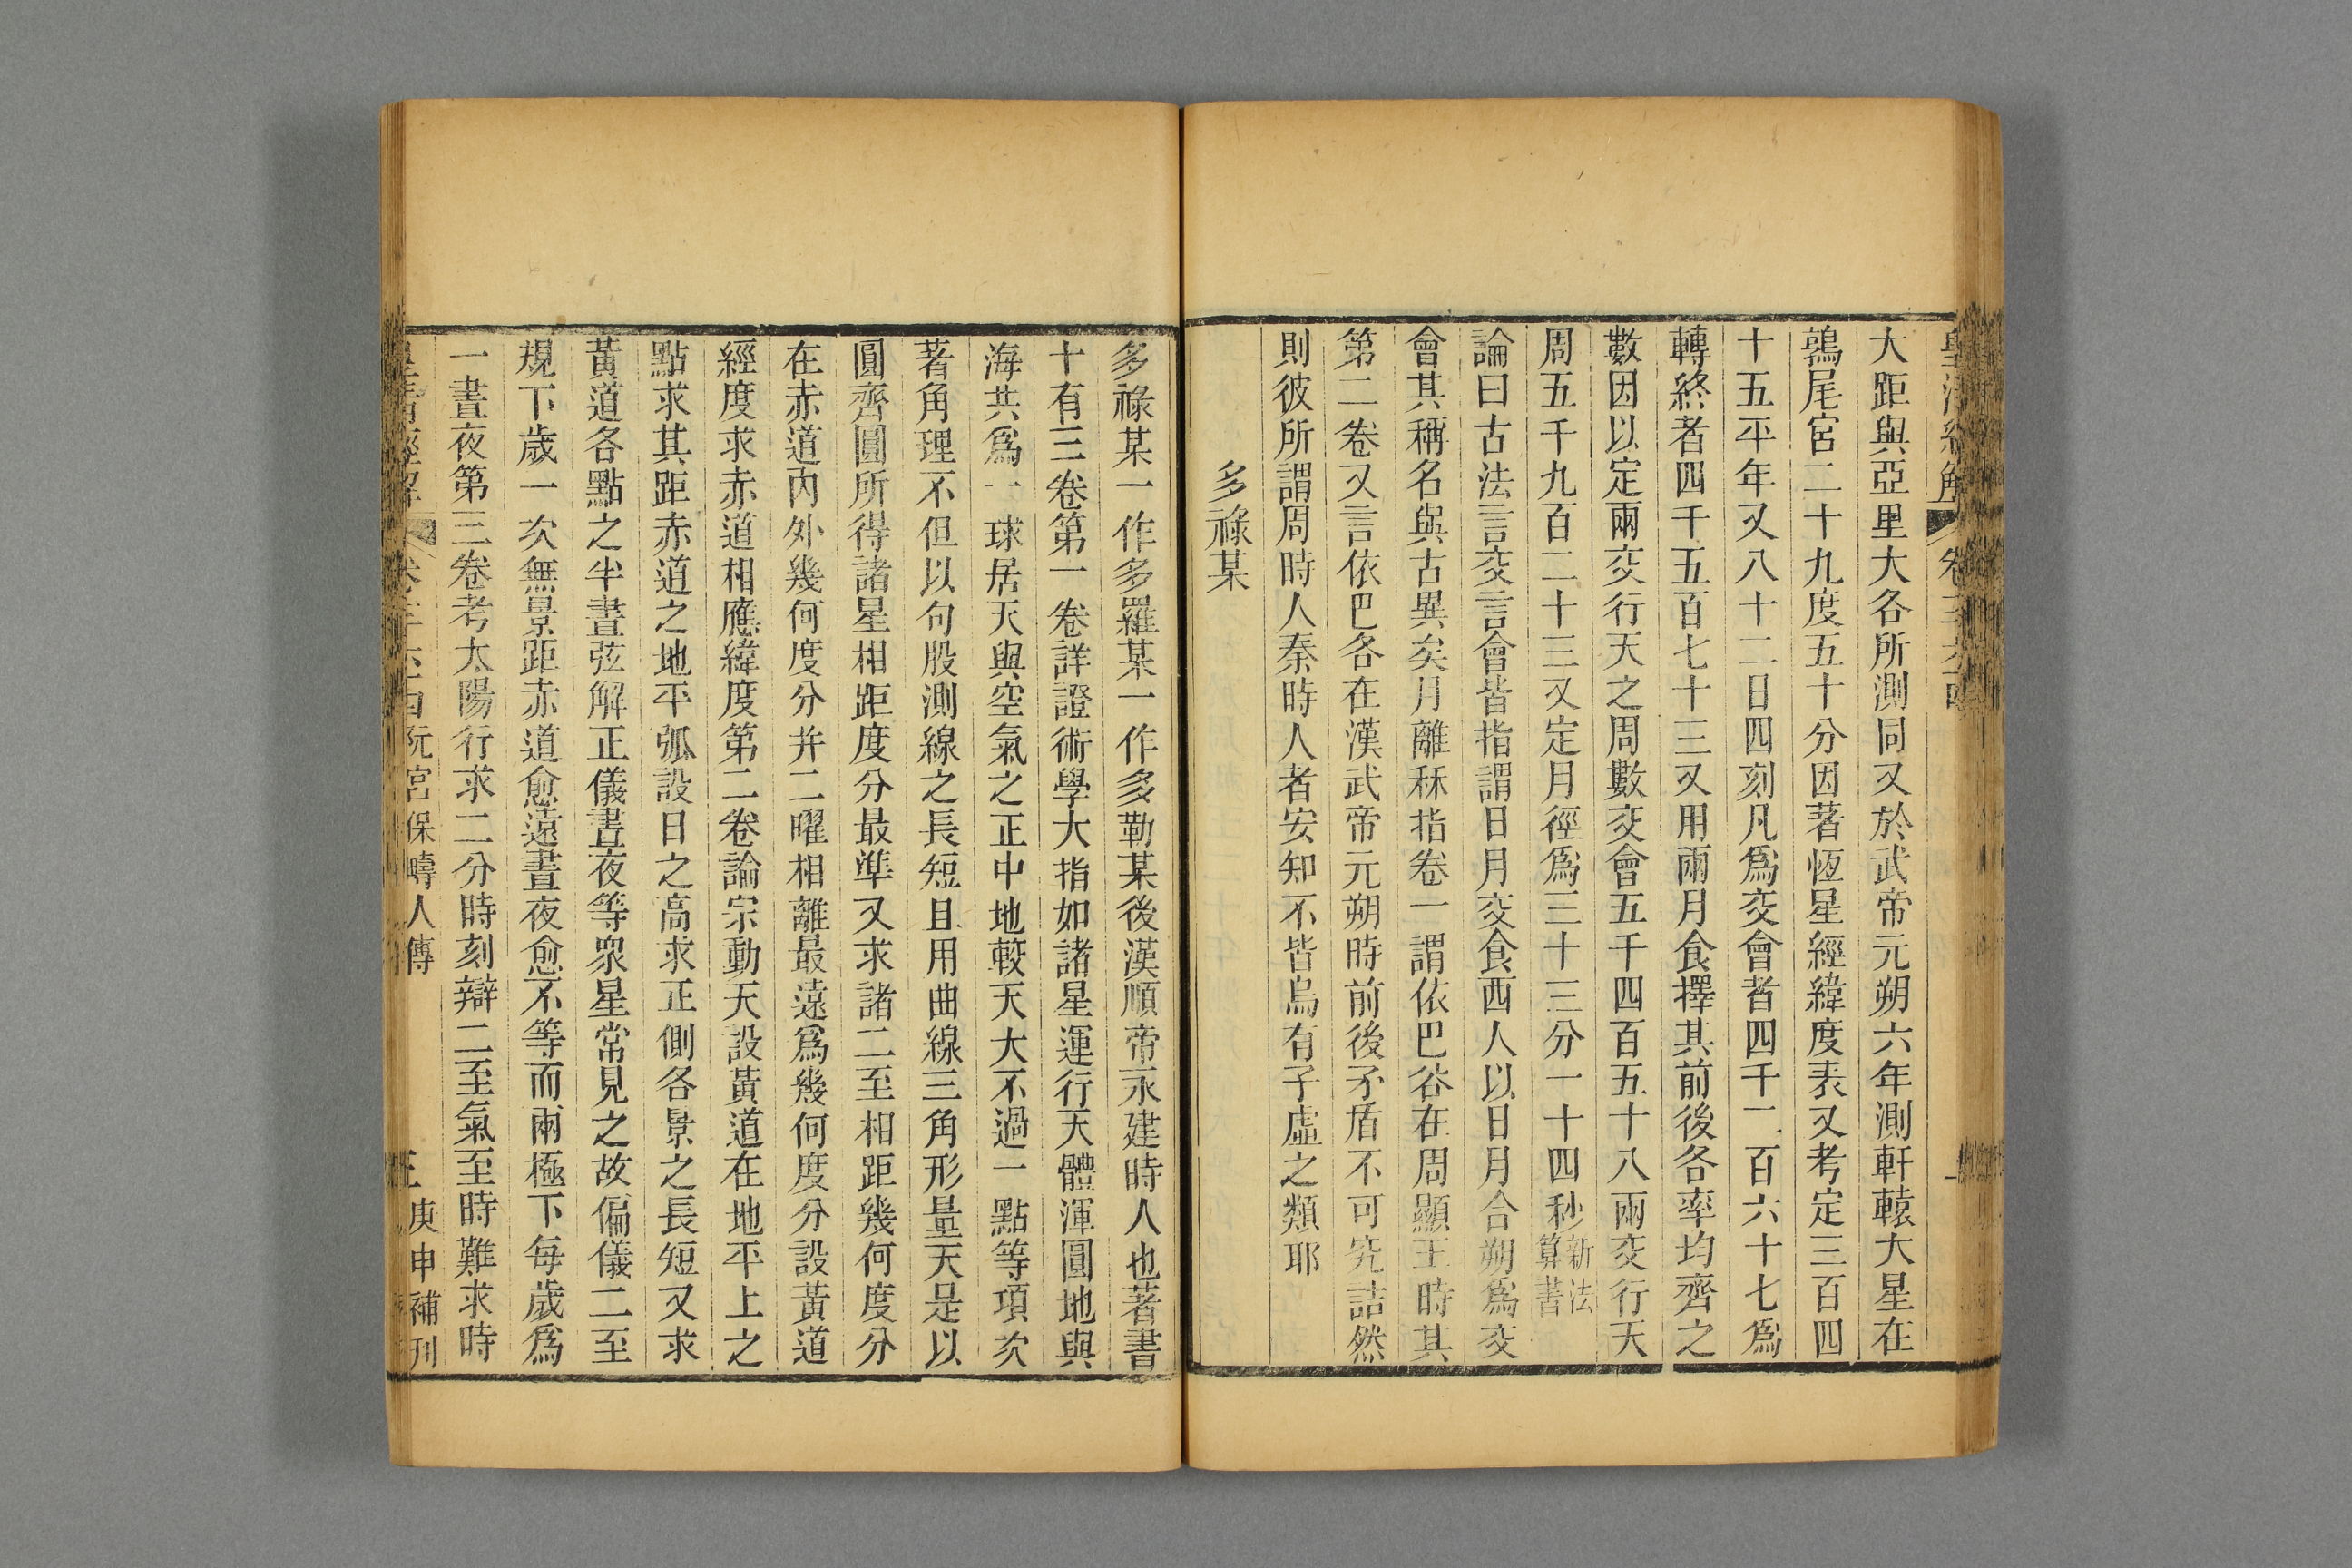 皇清經解 卷
大距與亞里大各所測同又於武帝元朔六年測軒轅大星在
鶉尾宮二十九度五十分因著恆星經緯度表又考定三百四
十五平年又八十二日四刻凡爲交會者四千二百六十七爲
轉終者四千五百七十三又用兩月食擇其前後各率均齊之
數因以定兩交行天之周數交會五千四百五十八兩交行天
周五千九百二十三又定月徑爲三十三分一十四秒新法算書
論曰古法言交言會皆指謂日月交食西人以日月合朔爲交
會其稱名與古異矣月離秝指卷一謂依巴谷在周顯王時其
第二卷又言依巴各在漢武帝元朔時前後矛盾不可究詰然
則彼所謂周時人秦時人者安知不皆烏有子虛之類耶
多祿某
多祿某一作多羅某一作多勒某後漢順帝永建時人也著書
十有三卷第一卷詳證術學大指如諸星運行天體渾圓地與
海共爲一球居天與空氣之正中地較天大不過一點等項次
著角理不但以句股測線之長短且用曲線三角形量天是以
圓齊圓所得諸星相距度分最準又求諸二至相距幾何度分
在赤道內外幾何度分并二曜相離最遠爲幾何度分設黃道
經度求赤道相應緯度第二卷論宗動天設黃道在地平上之
點求其距赤道之地平弧設日之高求正側各景之長短又求
黃道各點之半晝弦解正儀晝夜等衆星常見之故偏儀二至
規下歲一次無景距赤道愈遠晝夜愈不等而兩極下每歲爲
一晝夜第三卷考太陽行求二分時刻辯二至氣至時難求時
皇清經解 阮宮保疇人傳 庚申補刊